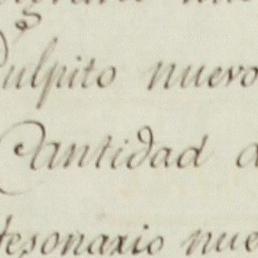 Pulpito nuevo
Cantidad d
tesonario nue